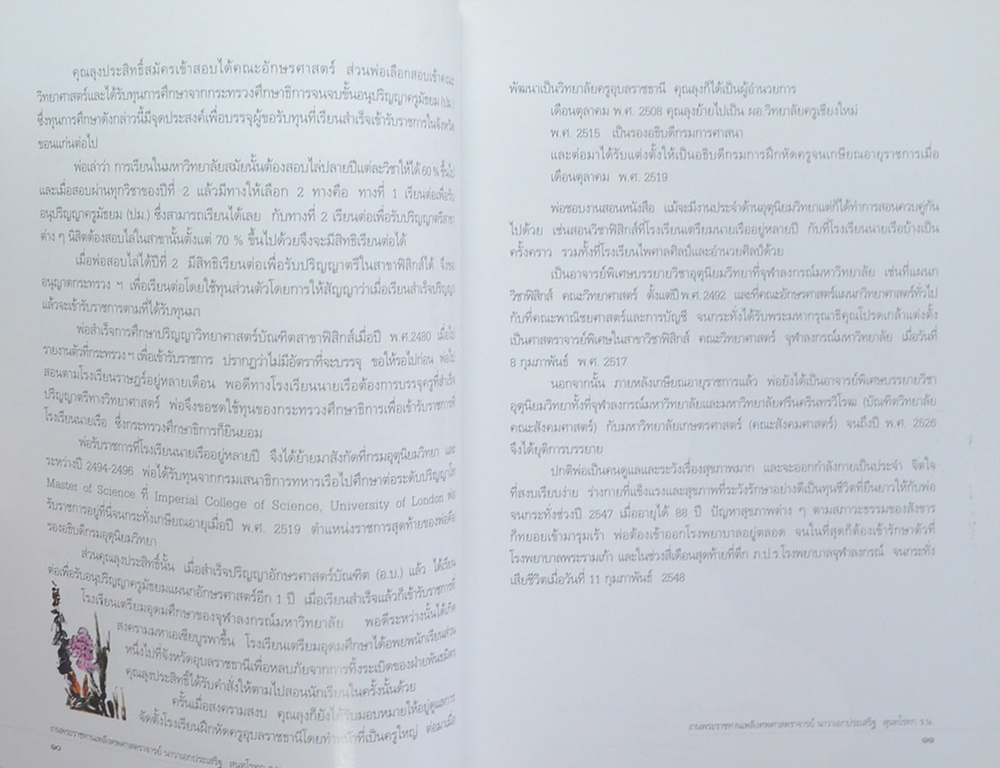 คุณลุงประสิทธิ์สมัครเข้าสอบได้คณะอักษรศาสตร์ ส่วนพ่อเลือกสอบเข้าคณะ
วิทยาศาสตร์และได้รับทุนการศึกษาจากกระทรวงศึกษาธิการจนจบชั้นอนุปริญญาครูมัธยม (ปม.)
ซึ่งทุนการศึกษาดังกล่าวนี้มีจุดประสงค์เพื่อบรรจุผู้ขอรับทุนที่เรียนสำเร็จเข้ารับราชการในจังหวัด
ขอนแก่นต่อไป
พ่อเล่าว่า การเรียนในมหาวิทยาลัยสมัยนั้นต้องสอบไล่ปลายปีแต่ละวิชาให้ได้ 60 % ขึ้นไป
และเมื่อสอบผ่านทุกวิชาของปีที่ 2 แล้วมีทางให้เลือก 2 ทางคือ ทางที่ 1 เรียนต่อเพื่อรับ
อนุปริญญาครูมัธยม (ปม.) ซึ่งสามารถเรียนได้เลย กับทางที่ 2 เรียนต่อเพื่อรับปริญญาตรีสาขา
ต่าง ๆ นิสิตต้องสอบไล่ในสาขานั้นตั้งแต่ 70 % ขึ้นไปด้วยจึงจะมีสิทธิเรียนต่อได้
เมื่อพ่อสอบไล่ได้ปีที่ 2 มีสิทธิเรียนต่อเพื่อรับปริญญาตรีในสาขาฟิสิกส์ได้ จึงขอ
อนุญาตกระทรวง ฯ เพื่อเรียนต่อโดยใช้ทุนส่วนตัวโดยการให้สัญญาว่าเมื่อเรียนสำเร็จปริญญา
แล้วจะเข้ารับราชการตามที่ได้รับทุนมา
พ่อสำเร็จการศึกษาปริญญาวิทยาศาสตร์บัณฑิตสาขาฟิสิกส์เมื่อปี พ.ศ.2480 เมื่อไป
รายงานตัวที่กระทรวงฯ เพื่อเข้ารับราชการ ปรากฏว่าไม่มีอัตราที่จะบรรจุ ขอให้รอไปก่อน พ่อไป
สอนตามโรงเรียนราษฎร์อยู่หลายเดือน พอดีทางโรงเรียนนายเรือต้องการบรรจุครูที่สำเร็จ
ปริญญาตรีทางวิทยาศาสตร์ พ่อจึงขอชดใช้ทุนของกระทรวงศึกษาธิการเพื่อเข้ารับราชการที่
โรงเรียนนายเรือ ซึ่งกระทรวงศึกษาธิการก็ยินยอม
พ่อรับราชการที่โรงเรียนนายเรืออยู่หลายปี จึงได้ย้ายมาสังกัดที่กรมอุตุนิยมวิทยา และ
ระหว่างปี 2494-2496 พ่อได้รับทุนจากกรมเสนาธิการทหารเรือไปศึกษาต่อระดับปริญญาโท
Master of Science ที่ Imperial College of Science, University of London พ่อ
รับราชการอยู่ที่นี่จนกระทั่งเกษียณอายุเมื่อปี พ.ศ. 2519 ตำแหน่งราชการสุดท้ายของพ่อคือ
รองอธิบดีกรมอุตุนิยมวิทยา
ส่วนคุณลุงประสิทธิ์นั้น เมื่อสำเร็จปริญญาอักษรศาสตร์บัณฑิต (อ.บ.) แล้ว ได้เรียน
ต่อเพื่อรับอนุปริญญาครูมัธยมแผนกอักษรศาสตร์อีก 1 ปี เมื่อเรียนสำเร็จแล้วก็เข้ารับราชการที่
โรงเรียนเตรียมอุดมศึกษาของจุฬาลงกรณ์มหาวิทยาลัย พอดีระหว่างนั้นได้เกิด
สงครามมหาเอเซียบูรพาขึ้น โรงเรียนเตรียมอุดมศึกษาได้อพยพนักเรียนส่วน
หนึ่งไปที่จังหวัดอุบลราชธานีเพื่อหลบภัยจากการทิ้งระเบิดของฝ่ายพันธมิตร
คุณลุงประสิทธิ์ได้รับคำสั่งให้ตามไปสอนนักเรียนในครั้งนั้นด้วย
ครั้นเมื่อสงครามสงบ คุณลุงก็ยังได้รับมอบหมายให้อยู่ดูแลการ
จัดตั้งโรงเรียนฝึกหัดครูอุบลราชธานีโดยทำหน้าที่เป็นครูใหญ่ ต่อมาเมื่อ
งานพระราชทานเพลิงศพศาสตราจารย์ นาวาเอกประเสริฐ สุนทโรทก
๑๐
พัฒนาเป็นวิทยาลัยครูอุบลราชธานี คุณลุงก็ได้เป็นผู้อำนวยการ
เดือนตุลาคม พ.ศ. 2508 คุณลุงย้ายไปเป็น ผอ.วิทยาลัยครูเชียงใหม่
พ.ศ. 2515 เป็นรองอธิบดีกรมการศาสนา
และต่อมาได้รับแต่งตั้งให้เป็นอธิบดีกรมการฝึกหัดครูจนเกษียณอายุราชการเมื่อ
เดือนตุลาคม พ.ศ. 2519
พ่อชอบงานสอนหนังสือ แม้จะมีงานประจำด้านอุตุนิยมวิทยาแต่ก็ได้ทำการสอนควบคู่กัน
ไปด้วย เช่นสอนวิชาฟิสิกส์ที่โรงเรียนเตรียมนายเรืออยู่หลายปี กับที่โรงเรียนนายเรือบ้างเป็น
ครั้งคราว รวมทั้งที่โรงเรียนไพศาลศิลป์และอำนวยศิลป์ด้วย
เป็นอาจารย์พิเศษบรรยายวิชาอุตุนิยมวิทยาที่จุฬาลงกรณ์มหาวิทยาลัย เช่นที่แผนก
วิชาฟิสิกส์ คณะวิทยาศาสตร์ ตั้งแต่ปีพ.ศ.2492 และที่คณะอักษรศาสตร์แผนกวิทยาศาสตร์ทั่วไป
กับที่คณะพาณิชยศาสตร์และการบัญชี จนกระทั่งได้รับพระมหากรุณาธิคุณโปรดเกล้าแต่งตั้ง
เป็นศาสตราจารย์พิเศษในสาขาวิชาฟิสิกส์ คณะวิทยาศาสตร์ จุฬาลงกรณ์มหาวิทยาลัย เมื่อวันที่
8 กุมภาพันธ์ พ.ศ. 2517
นอกจากนั้น ภายหลังเกษียณอายุราชการแล้ว พ่อยังได้เป็นอาจารย์พิเศษบรรยายวิชา
อุตุนิยมวิทยาทั้งที่จุฬาลงกรณ์มหาวิทยาลัยและมหาวิทยาลัยศรีนครินทรวิโรฒ (บัณฑิตวิทยาลัย
คณะสังคมศาสตร์) กับมหาวิทยาลัยเกษตรศาสตร์ (คณะสังคมศาสตร์) จนถึงปี พ.ศ. 2526
จึงได้ยุติการบรรยาย
ปกติพ่อเป็นคนดูแลและระวังเรื่องสุขภาพมาก และจะออกกำลังกายเป็นประจำ จิตใจ
ที่สงบเรียบง่าย ร่างกายที่แข็งแรงและสุขภาพที่ระวังรักษาอย่างดีเป็นทุนชีวิตที่ยืนยาวให้กับพ่อ
จนกระทั่งช่วงปี 2547 เมื่ออายุได้ 88 ปี ปัญหาสุขภาพต่าง ๆ ตามสภาวะธรรมของสังขาร
ก็ทยอยเข้ามารุมเร้า พ่อต้องเข้าออกโรงพยาบาลอยู่ตลอด จนในที่สุดก็ต้องเข้ารักษาตัวที่
โรงพยาบาลพระรามเก้า และในช่วงสี่เดือนสุดท้ายที่ตึก ภ.ป.ร.โรงพยาบาลจุฬาลงกรณ์ จนกระทั่ง
เสียชีวิตเมื่อวันที่ 11 กุมภาพันธ์ 2548
งานพระราชทานเพลิงศพศาสตราจารย์ นาวาเอกประเสริฐ สุนทโรทก ร.น.
๑๑